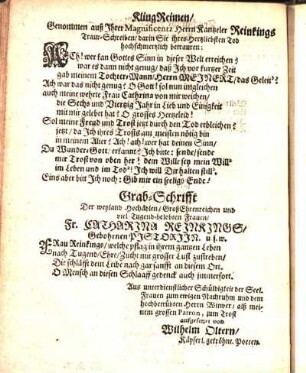 KlingReimen/
Genommen auß Ihrer Magnificentz Herrn Kantzeler Reinkings
Traur-Schreiben/ darin Sie ihres Hertzliebsten Tod
hochschmertzlich betrauren:
ACh! wer kan Gottes Sinn in dieser Welt erreichen?
war es dann nicht genug/ daß Ich vor kurtzer Zeit
gab meinem Tochter-Mann/ Herrn MEINERT/ das Geleit?
Ach war das nicht genug! O Gott! sol nun ungleichen
auch meine wehrte Frau Catharina von mir weichen/
die Sechs und Viertzig Jahr in Lieb und Einigkeit
mit mir gelebet hat! O grosses Hertzeleid!
Sol meine Freud und Trost jetzt durch den Tod erbleichen?
jetzt/ da Ich ihres Trostes am meisten nötig bin
in meinem Alter! Ach! ach! aber hat deinen Sinn/
Du Wunder-Gott/ erkannt! Ich bitte/ sende/ sende
mir Trost von oben her! dem Wille setz mein Will'
im Leben und im Tod! Ich will Dir halten still.
Eins aber bitt Ich noch: Gib mir ein seeligs Ende!
Grab-Schrifft
Der weyland HochEdlen/ Groß Ehrenreichen und
viel Tugend-belobten Frauen/
Fr. CATHARINA REINKINGS/
Gebohrnen PISTORIIN. u.s.w.
FRau Reinkings/ welche pflag in ihrem gantzen Leben
nach Tugend/ Ehre/ Zucht mit grosser Lust zustreben/
Die schläfft dem Leibe nach gar sanfft an diesem Ort.
O Mensch an diesen Schlaaff gedenck auch immerfort.
Aus unterdienstlicher Schüldigkeit der Seel.
Frauen zum ewigen Nachruhm und dem
hochbetrübten Herrn Wittwer/ alß meinem
grossen Patron, zum Trost
auffgesetzet von
Wilhelm Oltern/
Käyserl. gekröhnt. Poeten.